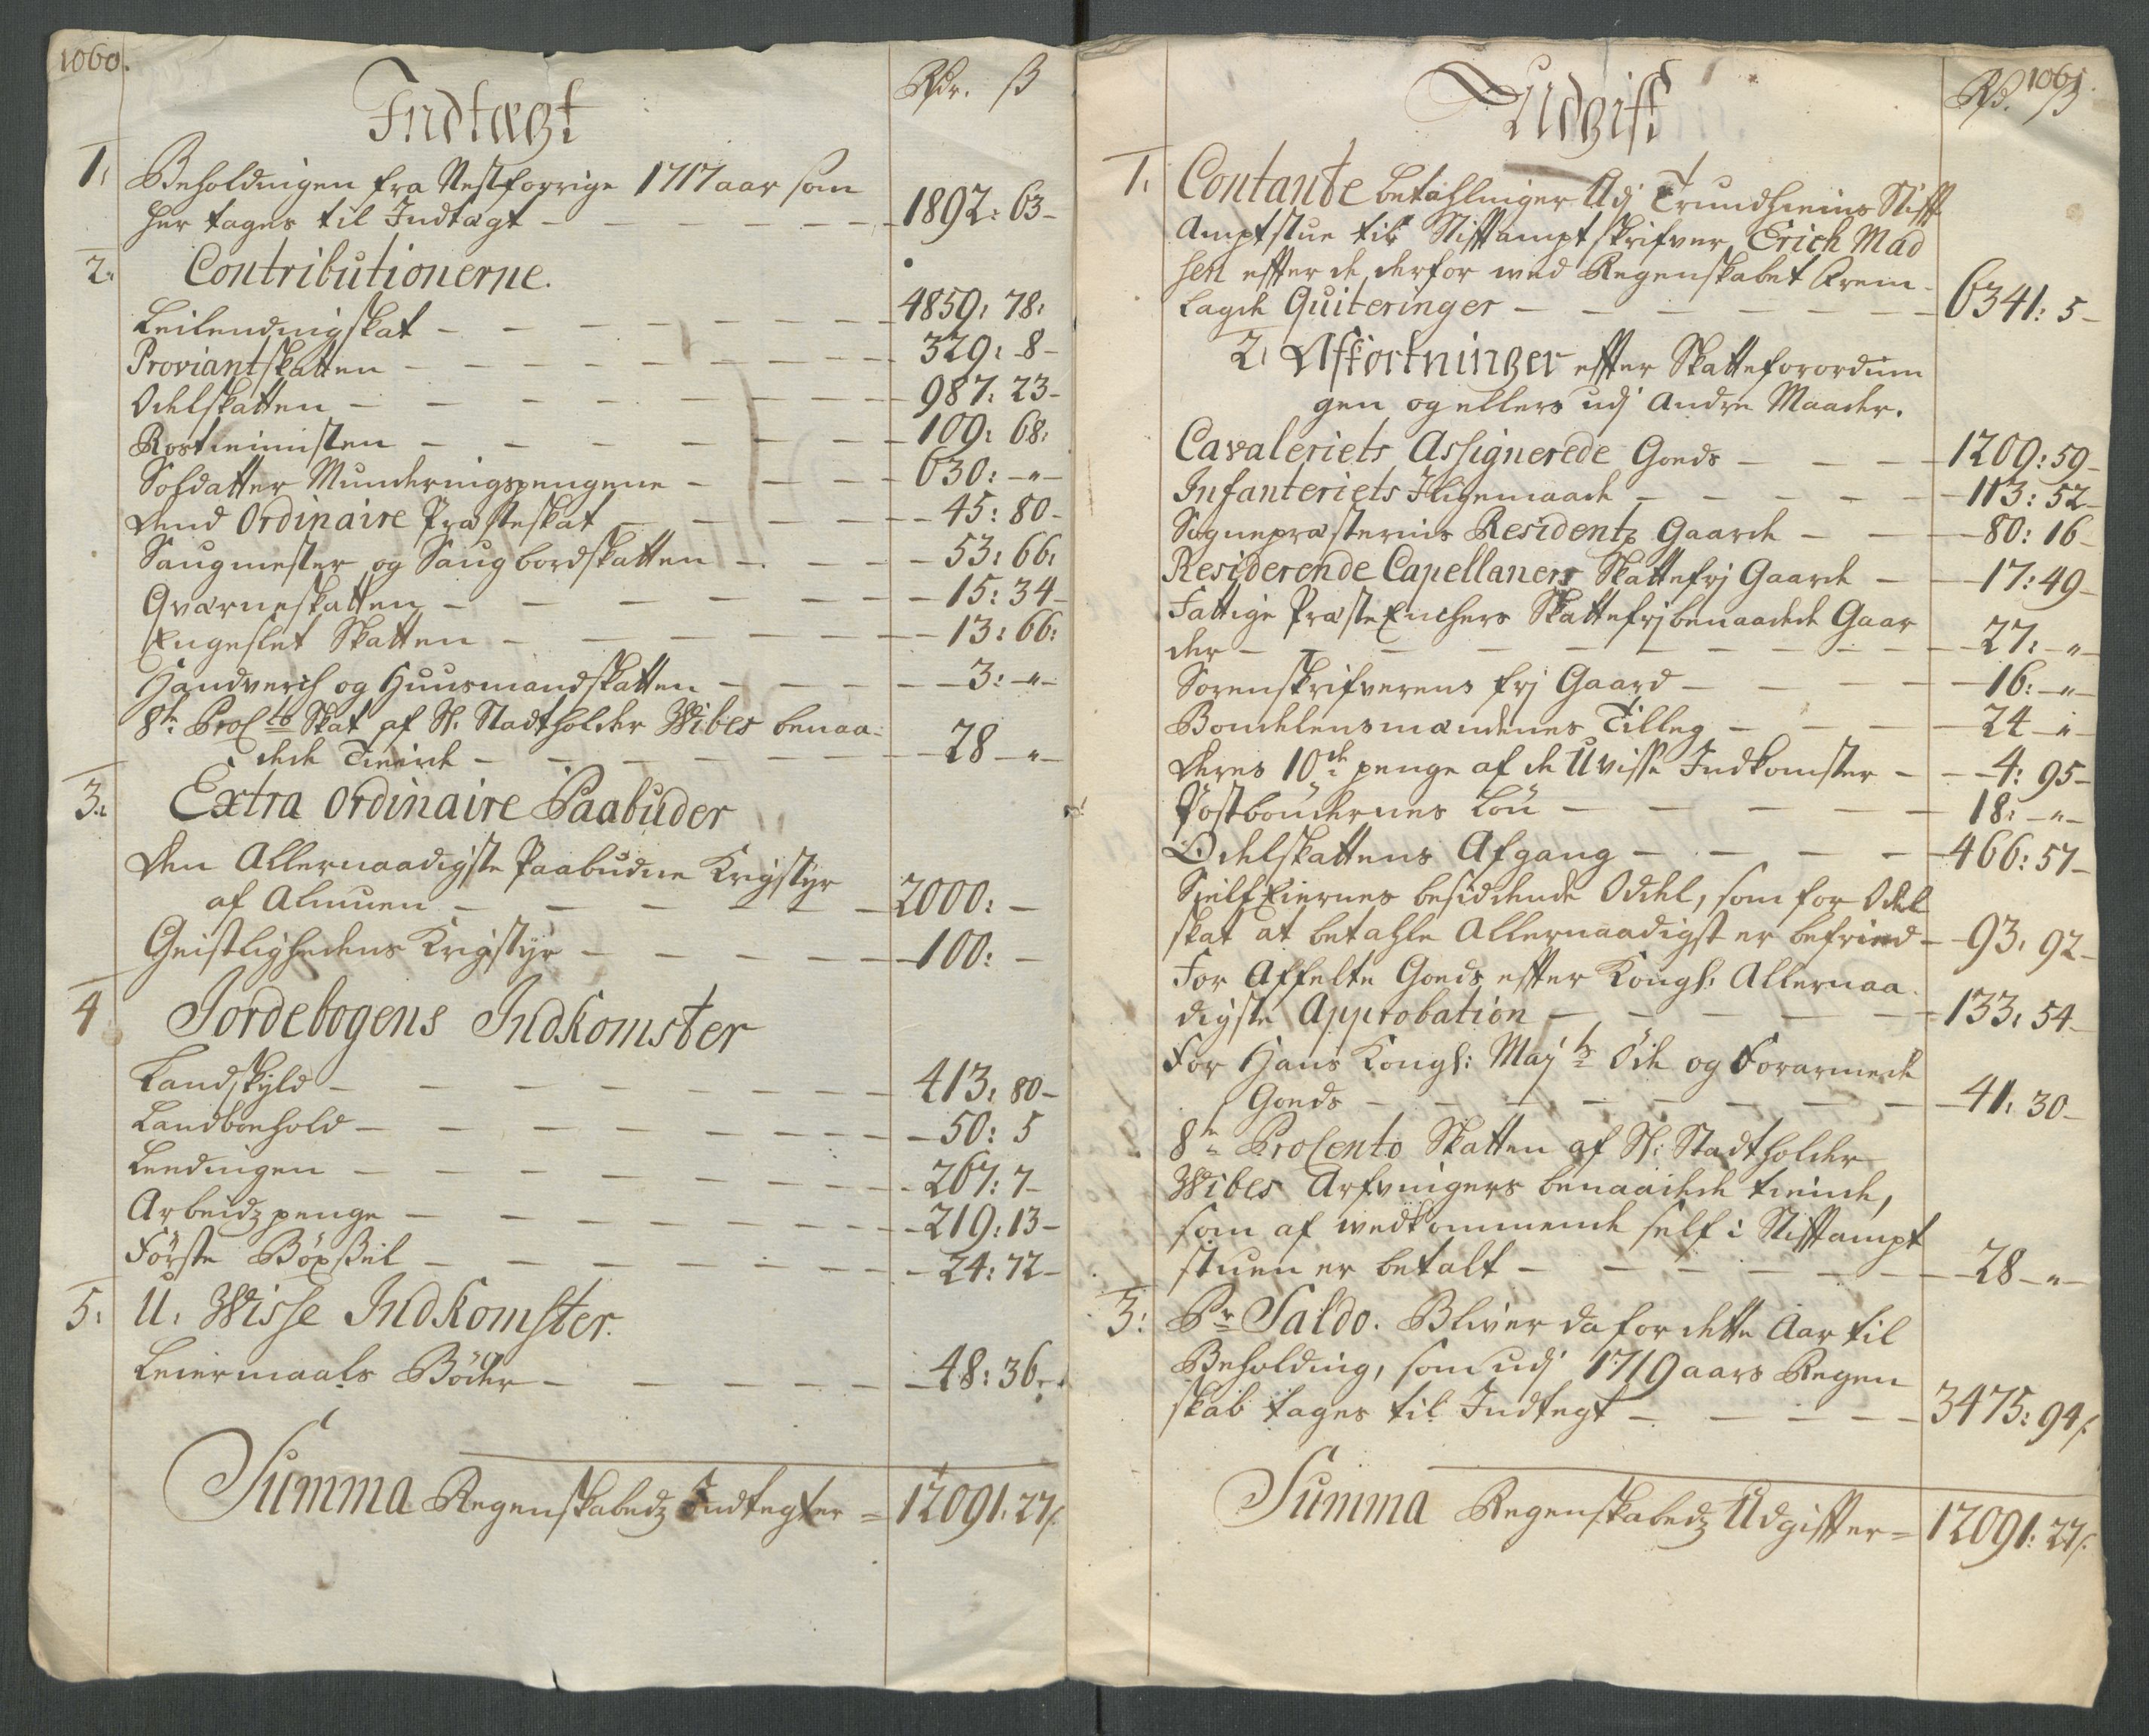 1060.
Indtægt
Rdr. ß
1. Beholdningen fra Nestforrige 1717 aar som
her tages til Indtægt - 1892: 63-
2. Contributionerne.
Leilendingskat - 4859: 78:
Proviantskatten - 329: 8-
Odelskatten - 987: 23-
Rostienisten - 109: 68:
Soldatter Munderingspengene - 630: -"-
Dend Ordinaire Præsteskat - 45: 80-
Saugmester og Saugbordskatten - 53: 66:
Qværneskatten - 15: 34-
Engeslet Skatten - 13: 66:
Handverch og Huusmandskatten - 3: -"-
8te ProCto Skat af Sl: Stadtholder Wibes benaa-
dede Tiende - 28 -"-
3. Extra Ordinaire Paabuder
Den Allernaadigste Paabudne Krigstyr
af Almuen - 2000: -
Geistlighedens Krigstyr - 100: -
4 Jordebogens Indkomster
Landskyld - 413: 80-
Landboehold - 50: 5
Leedingen - 267: 7-
Arbeidzpenge - 219: 13-
Förste Böxßel - 24: 72-
5: U: Wisse Indkomster.
Leiermaals Böder - 48: 36-
Summa Regenskabedz Indtegter = 12091: 27/.
1061.
Udgift
Rd. ß
1. Contante betahlninger Udj Trundhiems Stift
Amptstue til Stiftamptskrifver Erich Mad
sen effter de derfor med Regenskabet Frem-
lagde Quiteringer - 6341: 5-
2. Afkortninger effter Skatteforordnin
gen og ellers udj Andre Maader.
Cavaleriets Assignerede Goeds - 1209: 59-
Infanteriets Iligemaade - 113: 52-
Sognepræsternis Residentz Gaarde - 80: 16-
Residerende Capellaners Skattefrj Gaarde - 17: 49-
Fattige Præste Enchers Skattefrj benaadede Gaar
der - 27: -"-
Sorenskrifverens frj Gaard - 16: -"-
Bondelensmændenes Tilleg - 24 -"-
Deres 10de penge af de Uvisse Indkomster - 4: 95-
Postbøndernes Lön - 18: -"-
Odelskattens Afgang - 466: 57-
Sielf Eiernes besiddende Oddel, som for Odel
skat at betahle Allernaadigst er befried - 93: 92-
For Affelte Goeds effter Kongl: Allernaa-
digste Approbation - 133: 54-
For Hans Kongl: Mayts Öde og Forarmede
Goeds - 41: 30-
8te ProCento Skatten af Sl: Stadtholder
Wibes Arfvingers benaadede tiende,
som af wedkommende self i Stiftampt
stuen er betalt - 28 -"-
3: Pr Saldo. Bliver da for dette Aar til
Beholding, som udj 1719 aars Regen
skab tages til Indtegt - 3475: 94/.
Summa Regenskabedz Udgiffter = 12091: 27/.